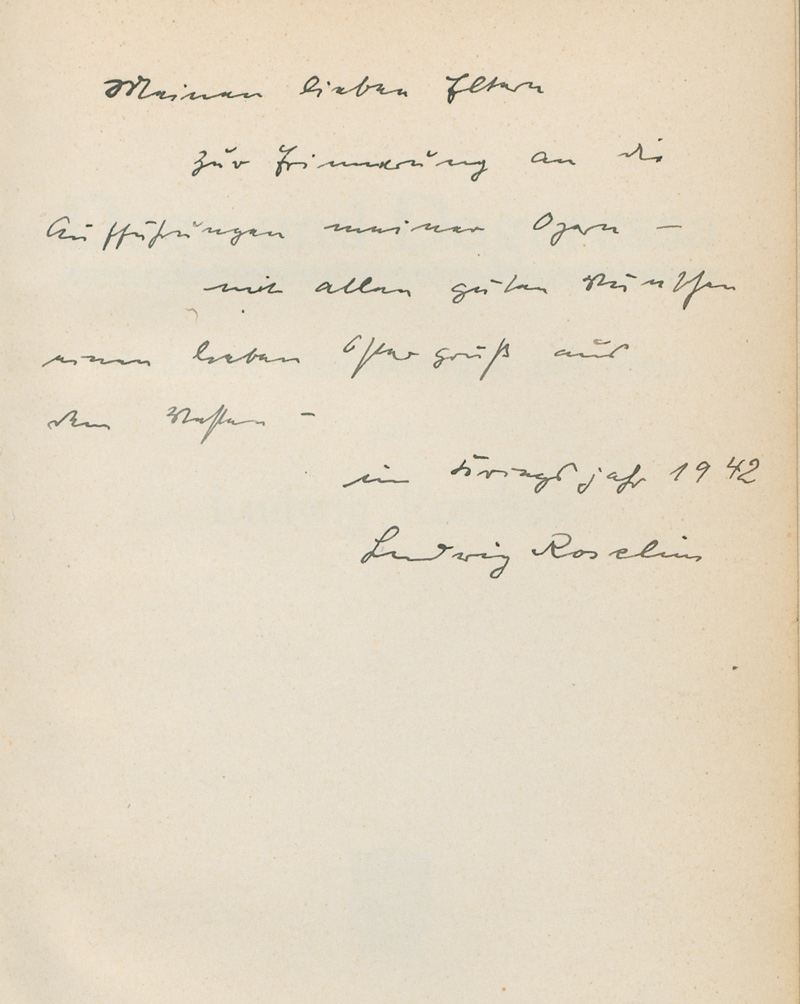 Meinen lieben Eltern
zur Erinnerung an die
Aufführungen meiner Opern –
mit allen guten Wünschen
einen lieben Ostergruß aus
dem Westen –
im Kriegsjahr 1942
Ludwig Roselius